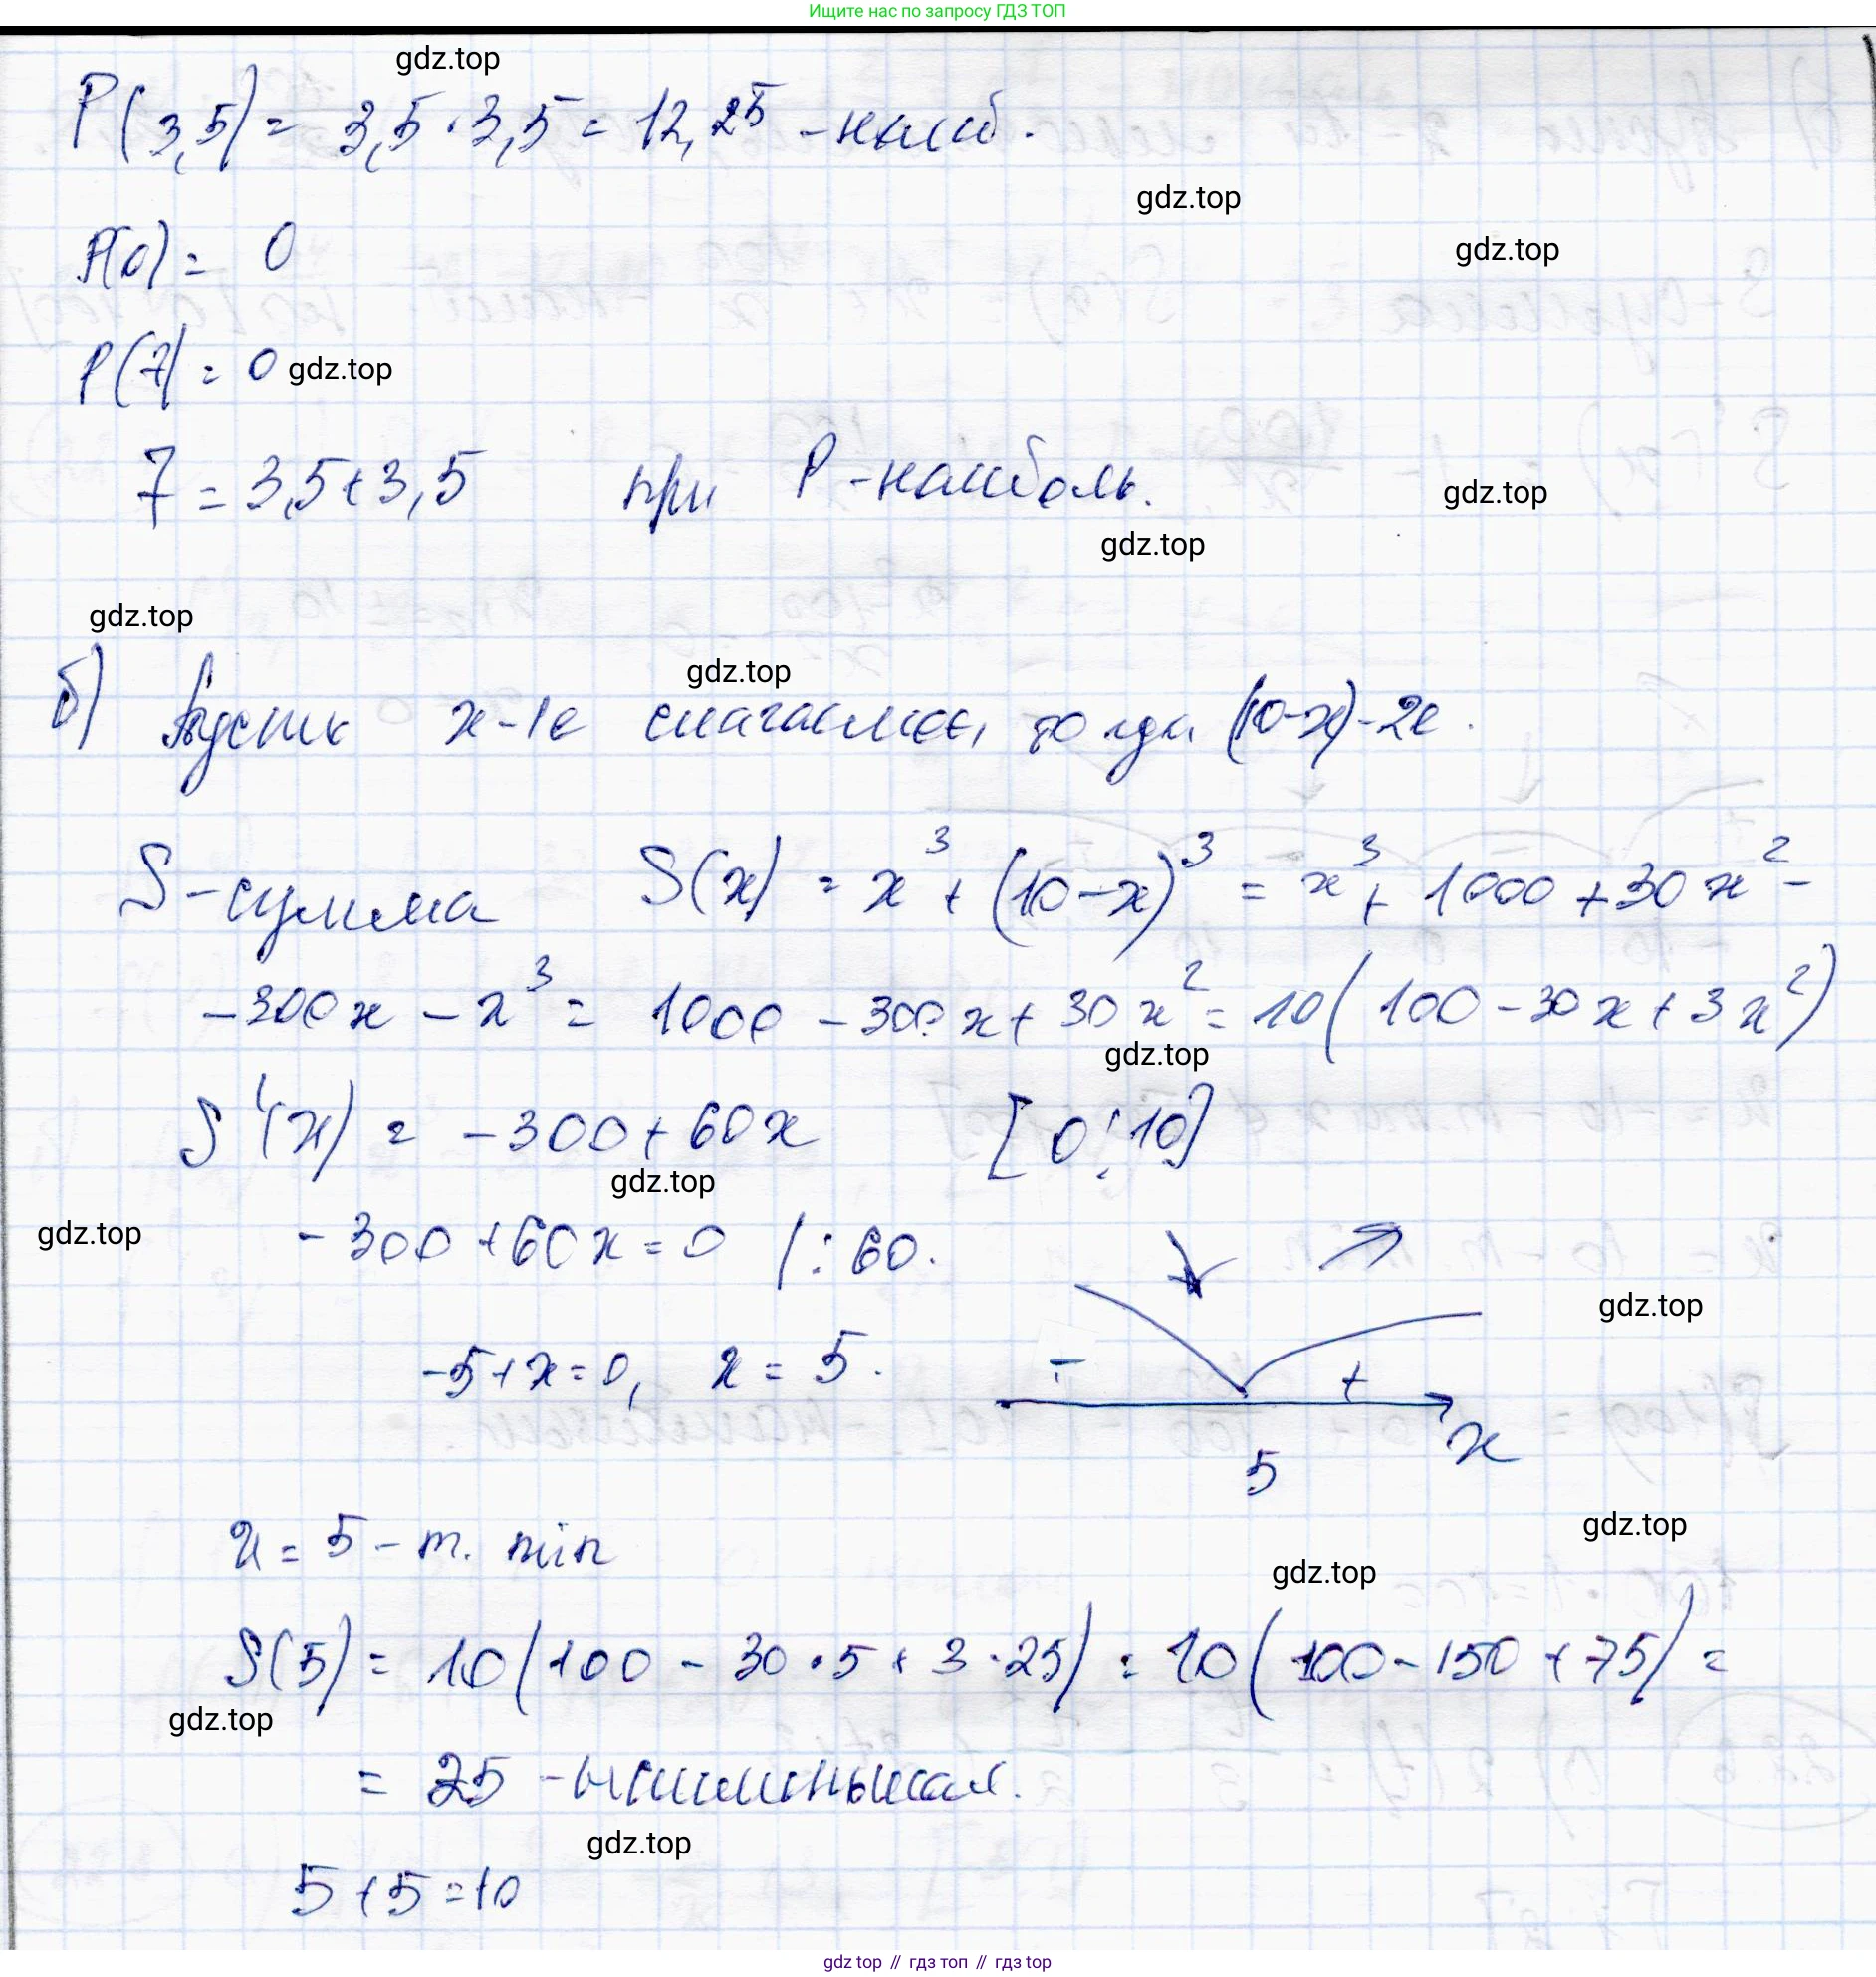 Ищите нас по запросу ГДЗ ТОП
gdz.top
P(3,5) = 3,5 · 3,5 = 12,25 - наиб.
gdz.top
P(0) = 0
gdz.top
P(7) = 0
gdz.top
7 = 3,5 + 3,5 при P - наиболь.
gdz.top
gdz.top
gdz.top
gdz.top
б) Пусть x - 1е слагаемое, тогда (10-x) - 2е.
S - сумма S(x) = x³ + (10-x)³ = x³ + 1000 + 30x² -
- 300x - x³ = 1000 - 300x + 30x² = 10(100 - 30x + 3x²)
gdz.top
S'(x) = -300 + 60x [0; 10]
gdz.top
gdz.top
-300 + 60x = 0 /: 60.
gdz.top
-5 + x = 0, x = 5.
- +
x
5
x = 5 - т. min
gdz.top
gdz.top
S(5) = 10(100 - 30 · 5 + 3 · 25) = 10(100 - 150 + 75) =
gdz.top
= 25 - наименьшая.
gdz.top
5 + 5 = 10
gdz.top // гдз топ // гдз top